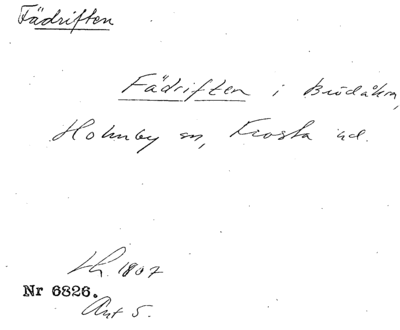 Fädriften
Fädriften i Brödåkra,
Holmby sn, Frosta hd.
Lh. 1807
Nr 6826.
Akt 5.